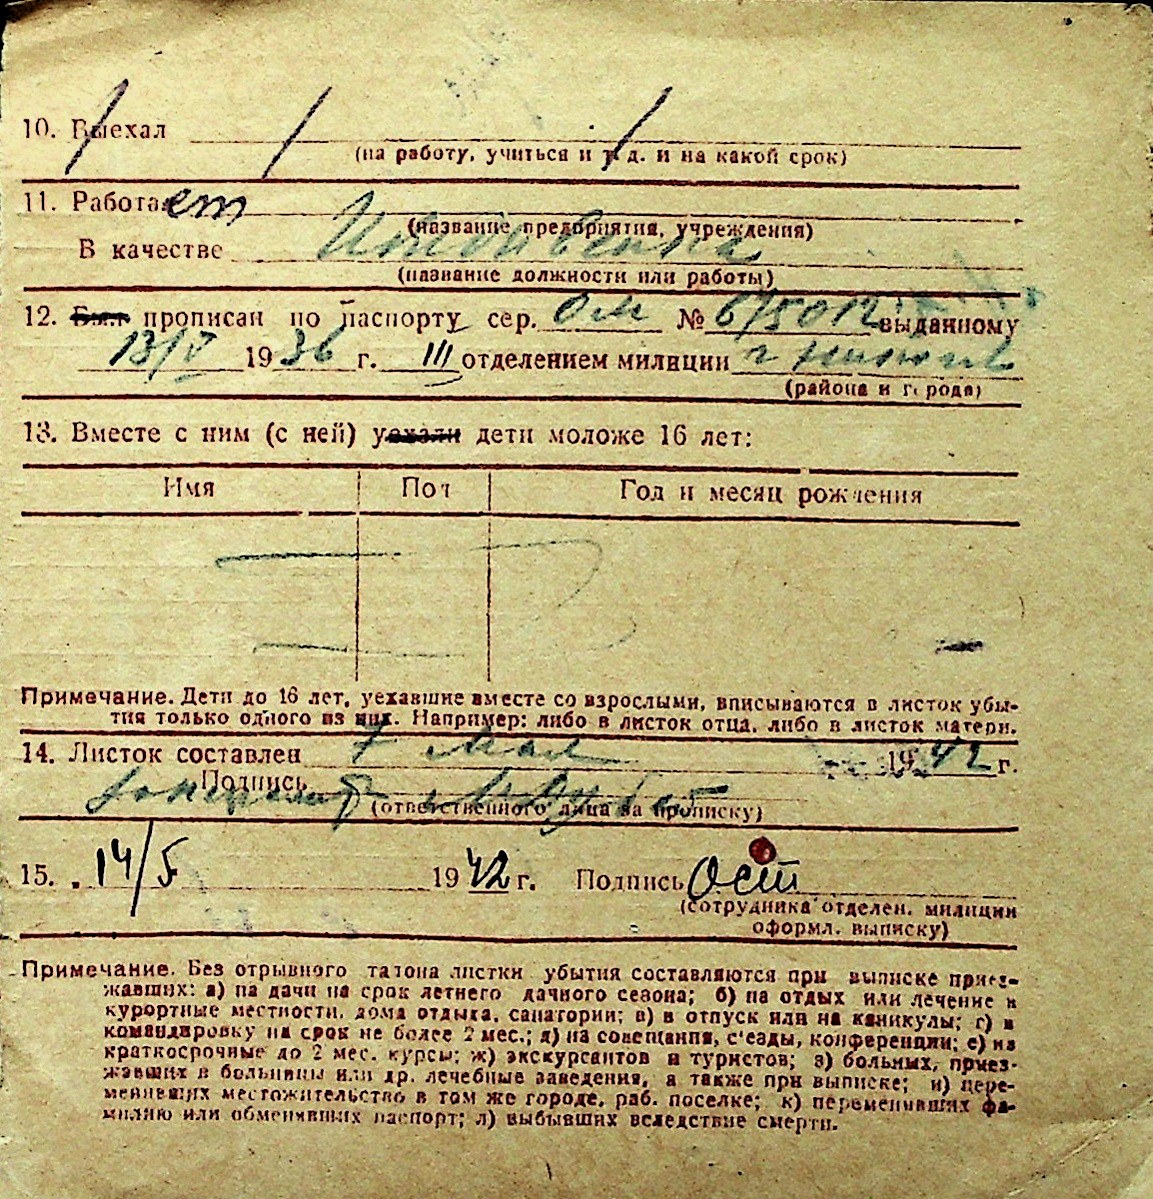 10. Выехал
(на работу, учиться и т. д. и на какой срок)
11. Работает
(название предприятия, учреждения)
В качестве Иждивенка
(название должности или работы)
12. Был прописан по паспорту сер. ОМ № 615012 выданному
13/V 1936 г. III отделением милиции г
(района и города)
13. Вместе с ним (с ней) уехали дети моложе 16 лет:
Имя Пол Год и месяц рождения
Примечание. Дети до 16 лет, уехавшие вместе со взрослыми, вписываются в листок убы-
тия только одного из них. Например: либо в листок отца, либо в листок матери.
14. Листок составлен 7 мая 1942 г.
Подпись
(ответственного лица за прописку)
15. 14/5 1942 г. Подпись Ост
(сотрудника отделен. милиции
оформл. выписку)
Примечание. Без отрывного талона листки убытия составляются при выписке приез-
жавших: а) на дачи на срок летнего дачного сезона; б) на отдых или лечение в
курортные местности, дома отдыха, санатории; в) в отпуск или на каникулы; г) в
командировку на срок не более 2 мес.; д) на совещания, с'езды, конференции; е) на
краткосрочные до 2 мес. курсы; ж) экскурсантов и туристов; з) больных, приез-
жавших в больницы или др. лечебные заведения, а также при выписке; и) пере-
менивших местожительство в том же городе, раб. поселке; к) переменивших фа-
милию или обменявших паспорт; л) выбывших вследствие смерти.